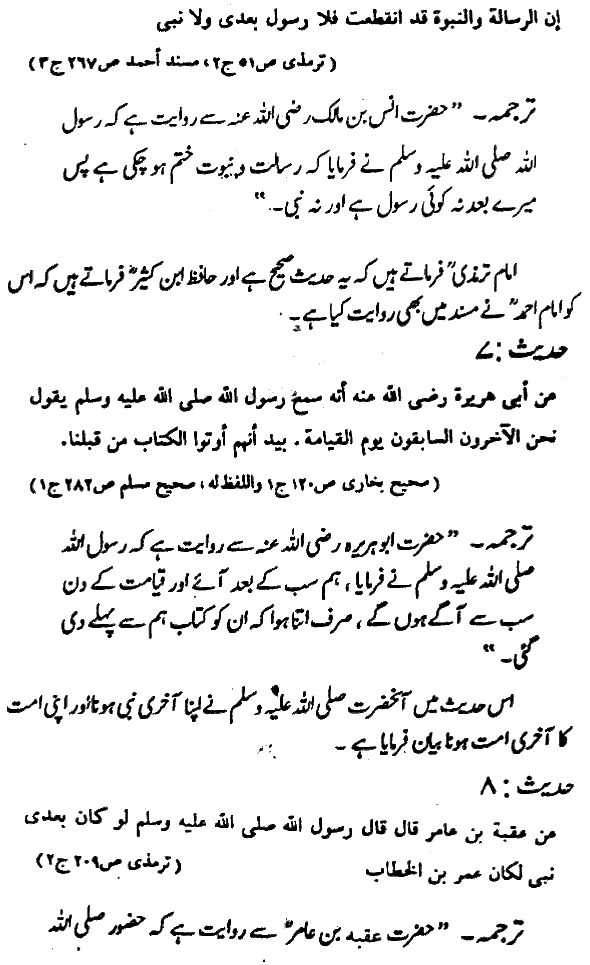 إن الرسالة والنبوة قد انقطعت فلا رسول بعدى ولا نبى
(ترمذى ص٥١ ج٢، مسند أحمد ص٢٦٧ ج٣)
ترجمہ۔ ”حضرت انس بن مالک رضی اللہ عنہ سے روایت ہے کہ رسول
اللہ صلی اللہ علیہ وسلم نے فرمایا کہ رسالت و نبوت ختم ہو چکی ہے پس
میرے بعد نہ کوئی رسول ہے اور نہ نبی۔“
امام ترمذیؒ فرماتے ہیں کہ یہ حدیث صحیح ہے اور حافظ ابن کثیرؒ فرماتے ہیں کہ اس
کو امام احمدؒ نے مسند میں بھی روایت کیا ہے۔
حدیث : ۷
من أبى هريرة رضى الله عنه أنه سمع رسول الله صلى الله عليه وسلم يقول
نحن الآخرون السابقون يوم القيامة. بيد أنهم أوتوا الكتاب من قبلنا.
(صحيح بخارى ص١٢٠ ج١ واللفظ له، صحيح مسلم ص٢٨٢ ج١)
ترجمہ۔ ”حضرت ابو ہریرہ رضی اللہ عنہ سے روایت ہے کہ رسول اللہ
صلی اللہ علیہ وسلم نے فرمایا، ہم سب کے بعد آئے اور قیامت کے دن
سب سے آگے ہوں گے، صرف اتنا ہوا کہ ان کو کتاب ہم سے پہلے دی
گئی۔“
اس حدیث میں آنحضرت صلی اللہ علیہ وسلم نے اپنا آخری نبی ہونا اور اپنی امت
کا آخری امت ہونا بیان فرمایا ہے۔
حدیث : ۸
من عقبة بن عامر قال قال رسول الله صلى الله عليه وسلم لو كان بعدى
نبى لكان عمر بن الخطاب (ترمذى ص٢٠٩ ج٢)
ترجمہ۔ ”حضرت عقبہ بن عامرؓ سے روایت ہے کہ حضور صلی اللہ